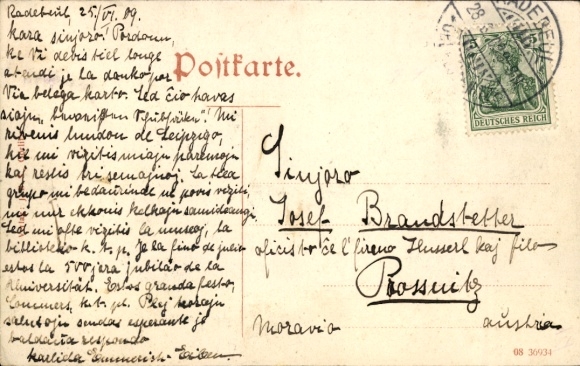 Radebeul, 25/VI. 09.
Kara sinjoro! Pardonu,
ke Vi devis tiel longe
atendi je la danko por
Via belega karto. Sed ĉio havas
Mi
revenis lundon de Leipzigo,
kie mi vizitis miajn parencojn
kaj restis tri semajnoj. La tiea
grupo mi bedaŭrinde ne povis viziti,
mi nur ekkonis kelkajn samideanoj.
Sed mi ofte vizitis la museoj, la
bibliotekoj k. t. p. Je la fino de julio
estos la 500jera jubilåo de la
Universität. Estos granda festo,
Commers, k. t. p. Plej korajn
salutojn sendas esperante je
baldaŭa respondo
Postkarte.
DEUTSCHES REICH
RADEBEUL
Sinjoro
Josef Brandstetter
oficisto ĉe l'firmo Husserl kaj filo
Prossnitz
Moravio
Austria
08 36934